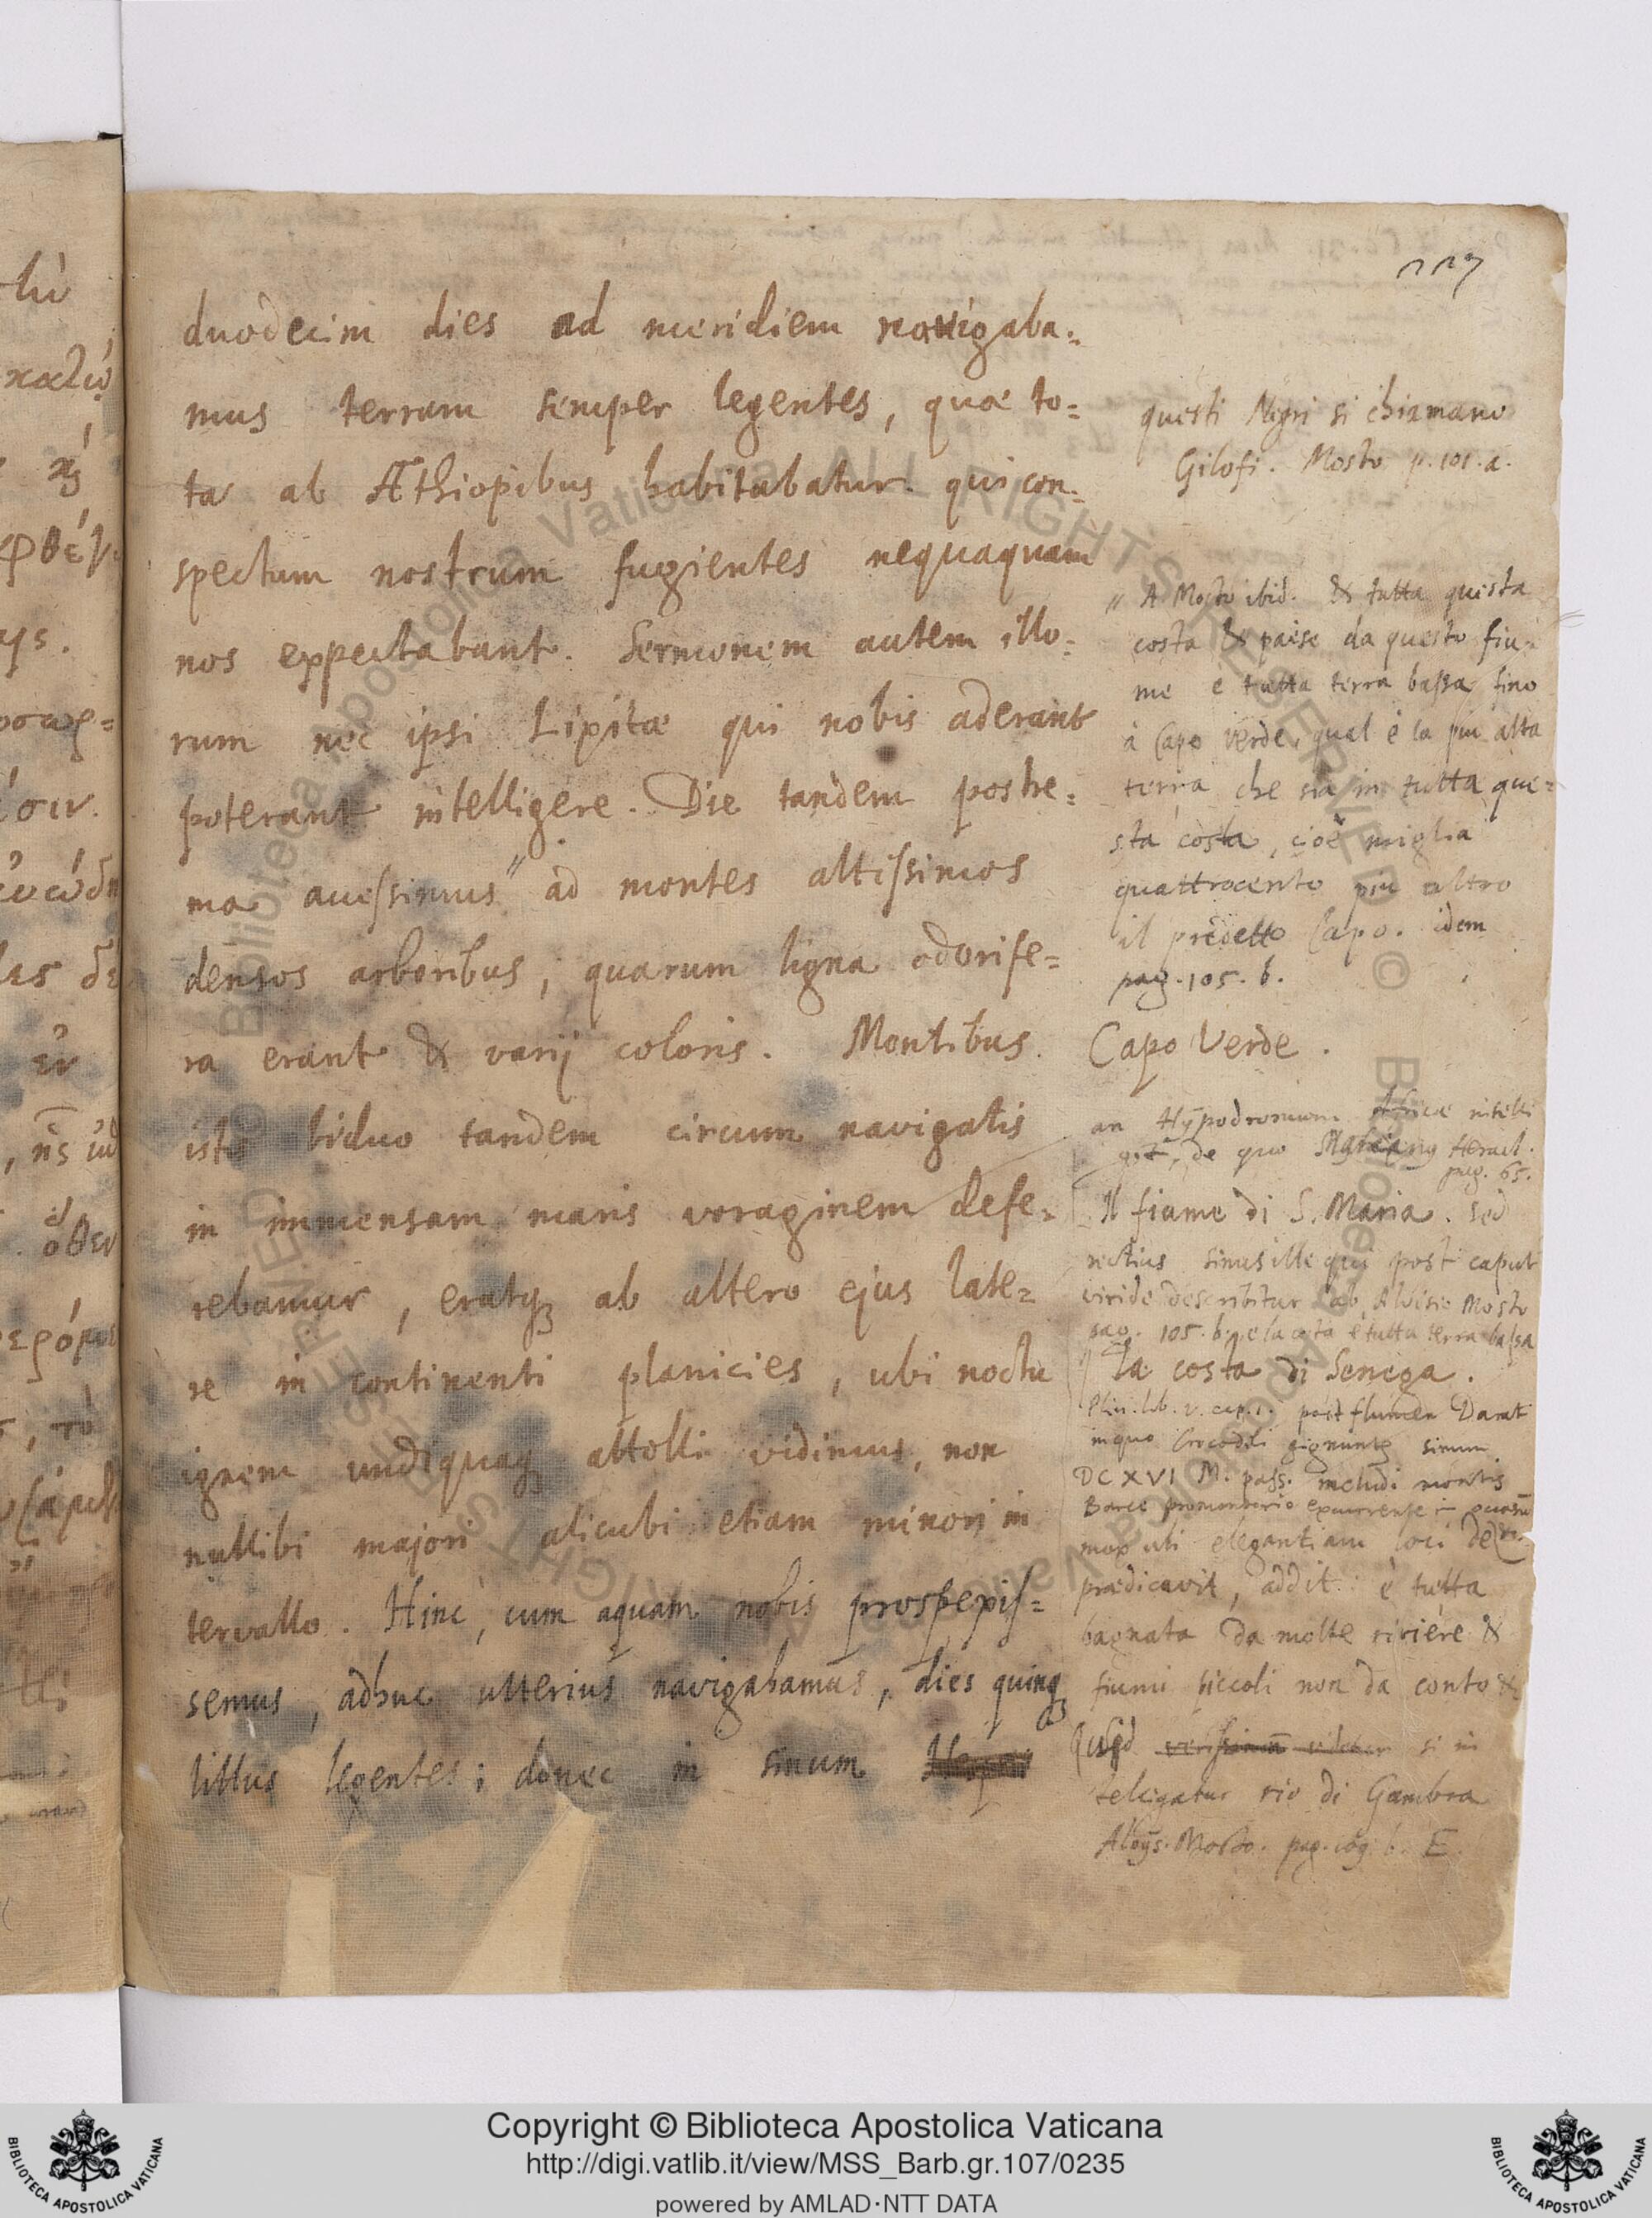 117
duodecim dies ad meridiem navigaba=
mus terram semper legentes, quæ to=
ta ab Æthiopibus habitabatur. qui con=
spectum nostrum fugientes nequaquam
nos expectabant. Sermonem autem illo=
rum nec ipsi Lixitæ qui nobis aderant
poterant intelligere. Die tandem postre=
ma avessimus " ad montes altissimos
densos arboribus, quarum ligna odorife=
ra erant & varij coloris. Montibus
istis biduo tandem circum navigatis
in immensam maris voraginem defe=
rebamur, eratq; ab altero ejus late=
re in continenti planicies, ubi noctu
ignem undiquaq; attolli vidimus, non
nullibi majori alicubi etiam minori in
tervallo. Hinc, cum aquam nobis prospexis=
semus, adhuc ulterius navigabamus, dies quinq;
littus legentes; donec in sinum
questi Negri si chiamano
Gilofi. Mosto p. 101. a.
" A Mosto ibid. & tutta questa
costa & paese da questo fiu=
me e tutta terra bassa fino
à Capo verde, qual è la piu alta
terra che sia in tutta que=
sta costa, cioè miglia
quattrocento piu oltro
il predetto Capo. idem
pag. 105. b.
Capo Verde.
an Hypodromum Africæ intelli
git, de quo Marcianus Heracl.
pag. 65.
Il fiume di S. Maria. sed
rectius sinus ille qui post caput
viride describitur ab Aloisio Mosto
pag. 105. b. e la costa è tutta terra bassa
la costa di Senega.
Plin. lib. v. cap. 1. post flumen Darat
in quo Crocodili gignunt; sinum
DCXVI M. pass. includi montis
Barce promontorio excurrente in
mox ubi elegantiam loci
prædicavit, addit: è tutta
bagnata da molte riviere &
fiumi piccoli non da conto &
Quid si in
telligatur rio di Gambra
Aloys. Mosto. pag. 109. b. E.
Copyright © Biblioteca Apostolica Vaticana
http://digi.vatlib.it/view/MSS_Barb.gr.107/0235
powered by AMLAD·NTT DATA
BIBLIOTECA APOSTOLICA VATICANA
BIBLIOTECA APOSTOLICA VATICANA